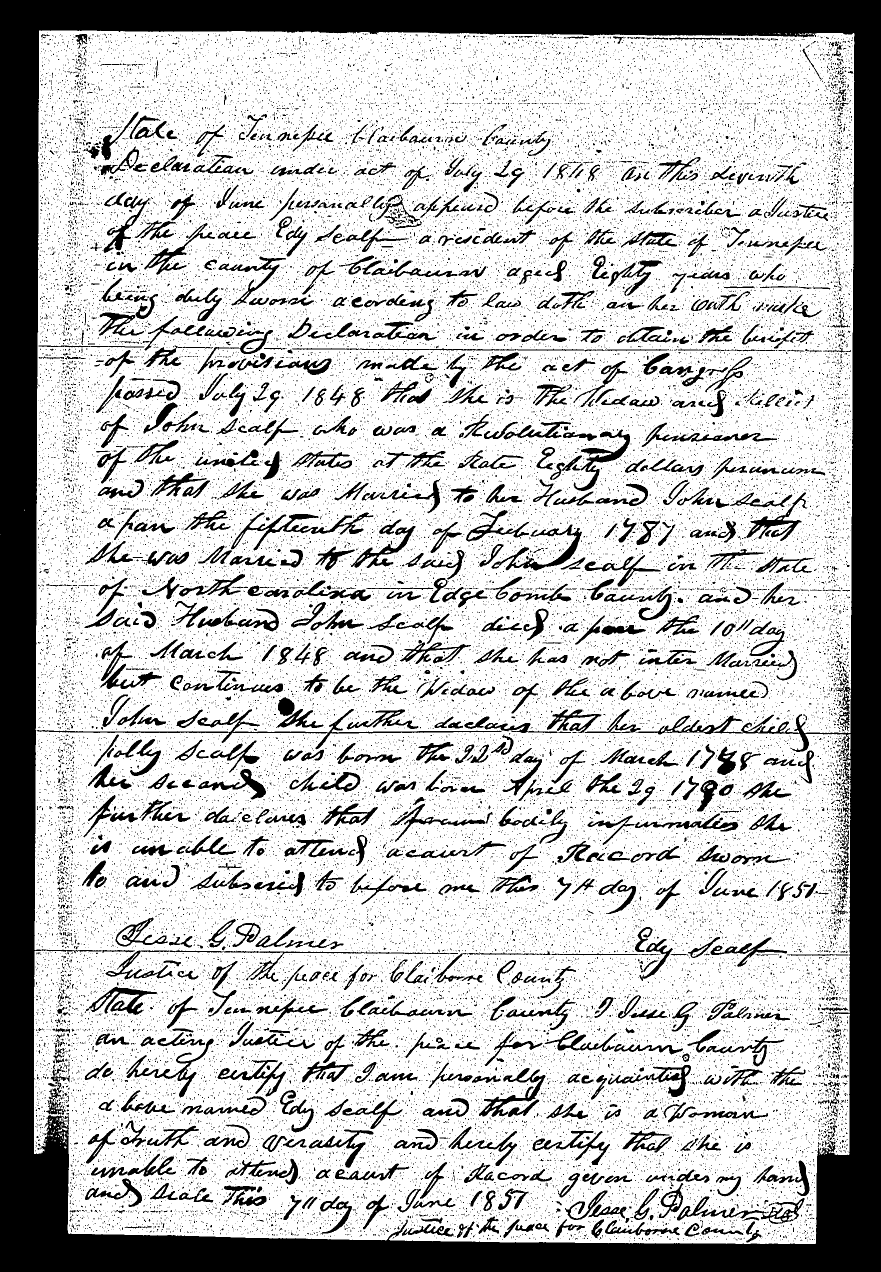 State of Tennessee Claibourn County
Declaration under act of July 29 1848 on this seventh
day of June personally appeared before the subscriber a Justice
of the peace Edy Scalf a resident of the State of Tennessee
in the county of Claibourn aged Eighty years who
being duly sworn acording to law doth on her oath make
the following Declaration in order to obtain the benifit
of the provisions made by the act of Congress
passed July 29 1848 that she is the Widow and
of John Scalf who was a Revolutionary pensioner
of the united states at the Rate Eighty dollars peranum
and that she was Married to her Husband John Scalf
apon the fifteenth day of Febuary 1787 and that
she was Married to the said John Scalf in the State
of North carolina in Edge Comb County. and her
said Husband John Scalf died apon the 10th day
of March 1848 and that she has not inter Married
but continues to be the Widow of the above named
John Scalf She further declares that her oldest child
polly Scalf was born the 22nd day of March 1788 and
her second child was born April the 29 1790 she
further daclares that from bodily infurmaties she
is unable to attend acourt of Racord sworn
to and subscried to before me this 7th day of June 1851
Jesse G. Palmer Edy Scalf
Justice of the peace for Claiborne County
State of Tennessee Claibourn County I Jesse G Palmer
an acting Justice of the peace for Claibourn County
do hereby certify that I am personally acquainted with the
above named Edy Scalf and that she is a Woman
of Truth and verasity and hereby certify that she is
unable to attend acourt of Racord given under my hand
and seale This 7th day of June 1851 Jesse G. Palmer Seal
Justice of the peace for Claiborne County